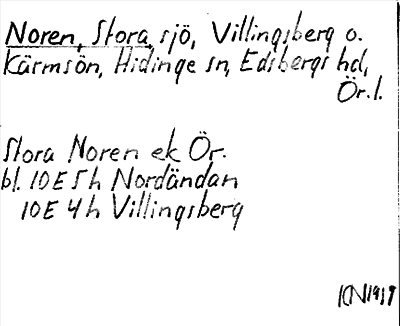 Noren, Stora, sjö, Villingsberg o.
Kärmsön, Hidinge sn, Edsbergs hd,
Ör. l.
Stora Noren ek Ör.
bl. 10E 5h Nordändan
10E 4h Villingsberg